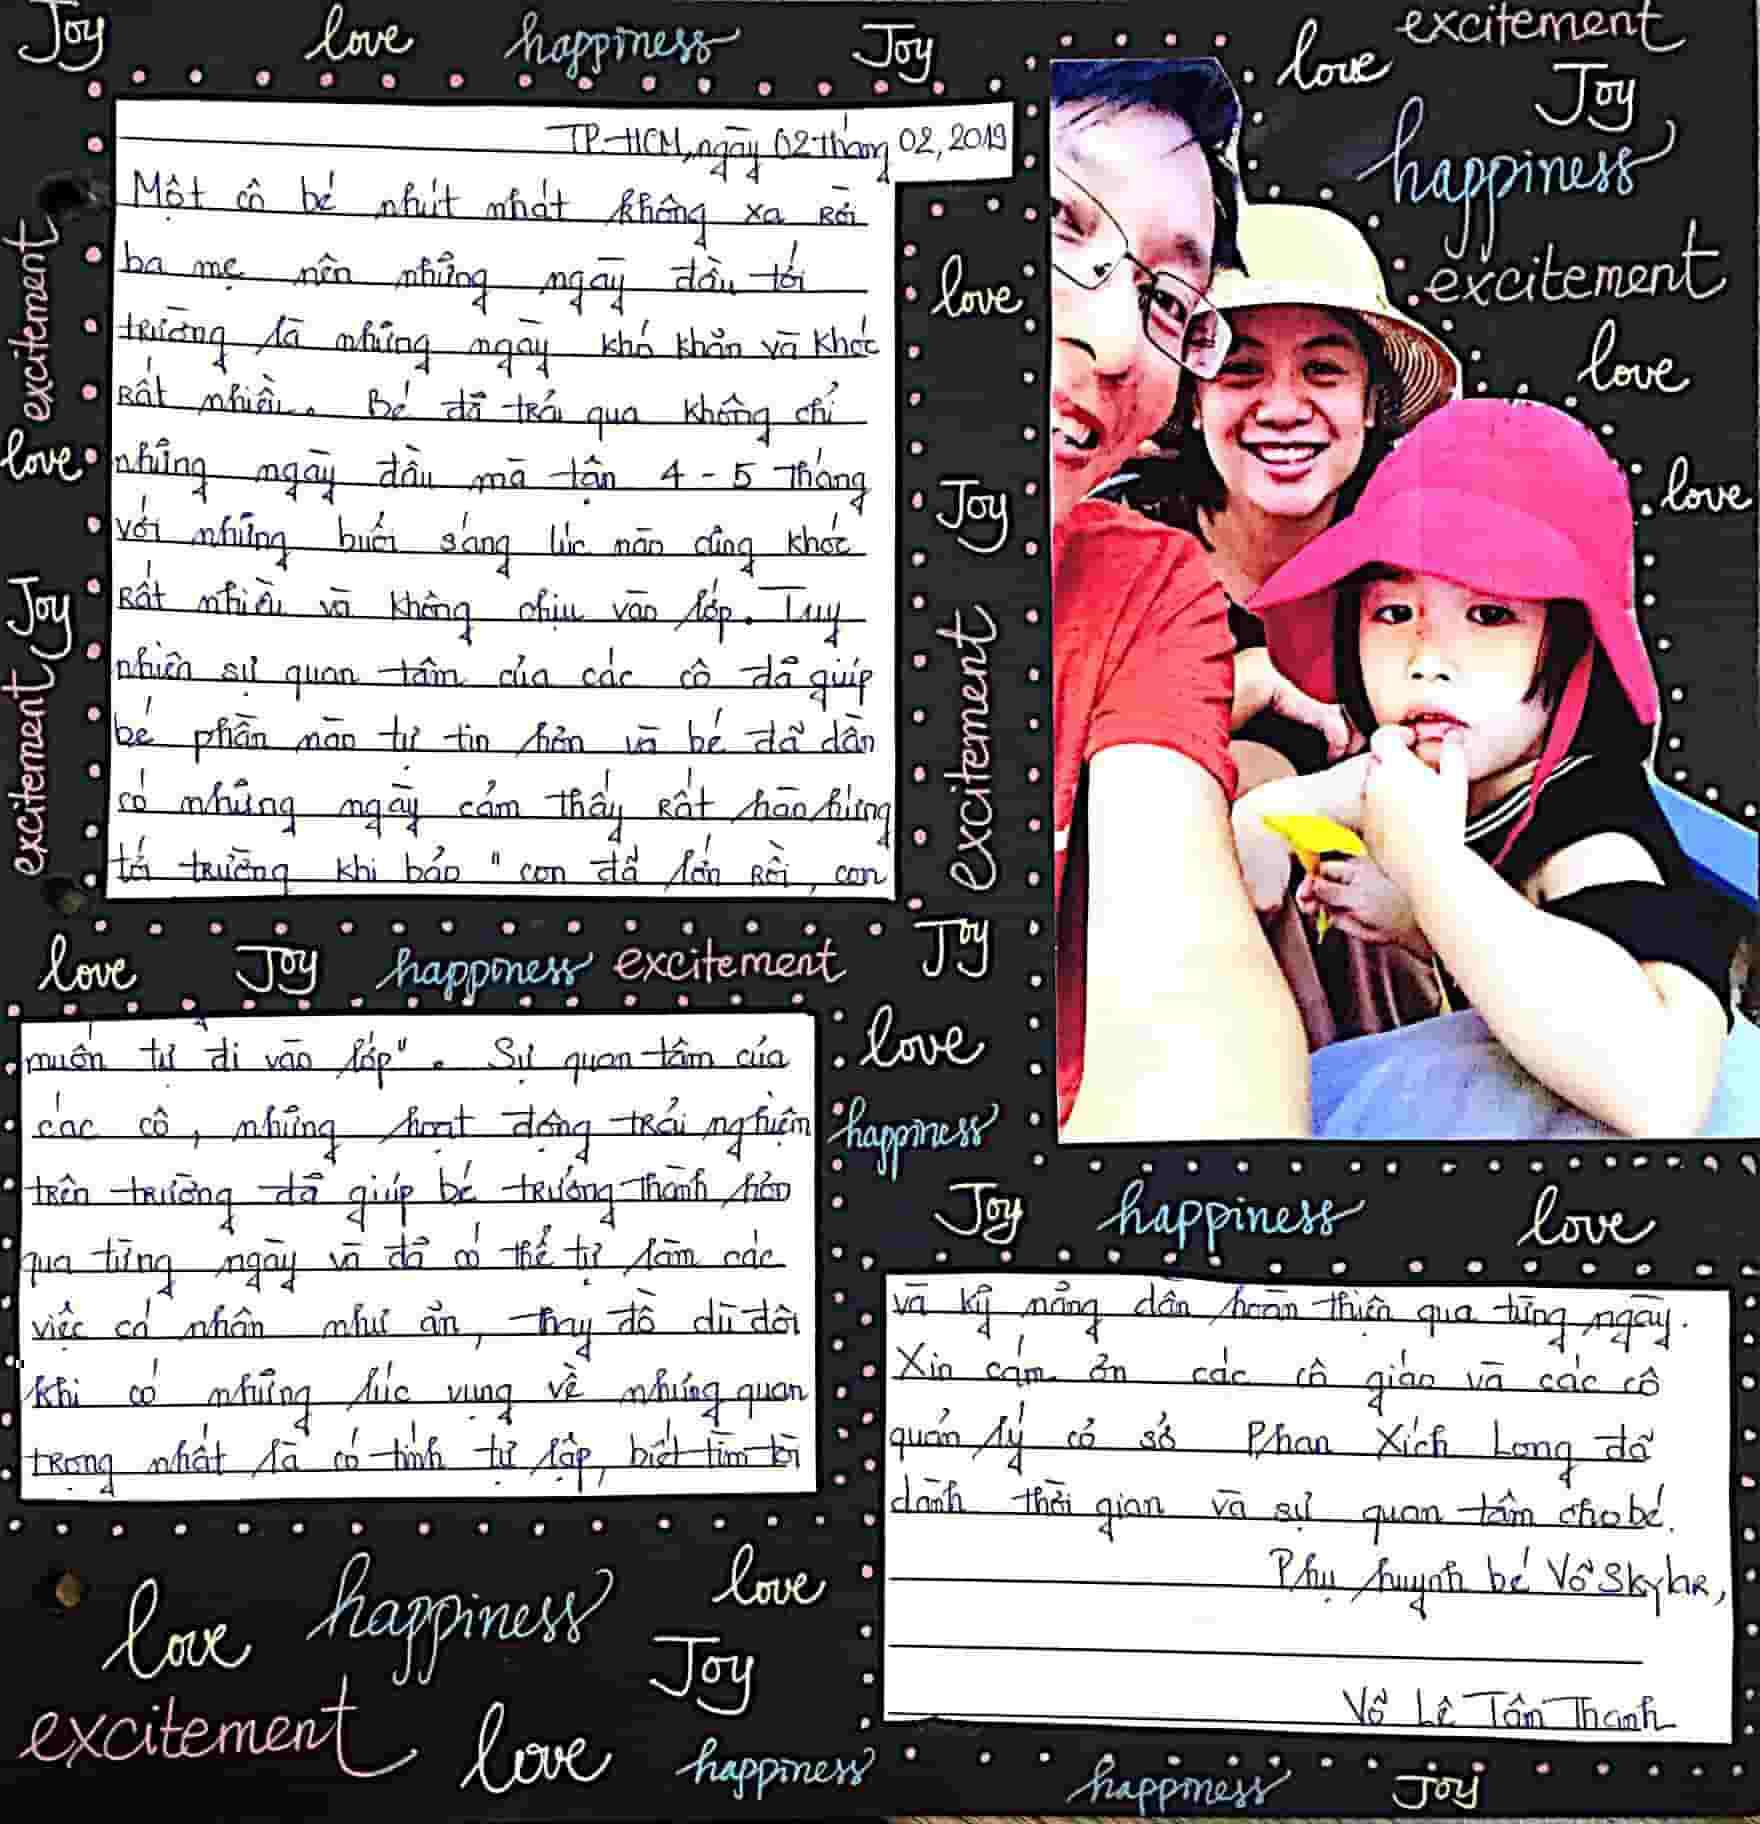 Joy love happiness Joy
excitement
love
Joy
happiness
excitement
love
love
TP-HCM, ngày 02 tháng 02, 2019
Một cô bé nhút nhát không xa rời
ba mẹ nên những ngày đầu tới
trường là những ngày khó khăn và khóc
rất nhiều. Bé đã trải qua không chỉ
những ngày đầu mà tận 4 - 5 tháng
với những buổi sáng lúc nào cũng khóc
rất nhiều và không chịu vào lớp. Tuy
nhiên sự quan tâm của các cô đã giúp
bé phần nào tự tin hơn và bé đã dần
có những ngày cảm thấy rất hào hứng
tới trường khi bảo "con đã lớn rồi, con
excitement
love
Joy
excitement
love
Joy
excitement
Joy
love Joy happiness excitement
love
happiness
muốn tự đi vào lớp". Sự quan tâm của
các cô, những hoạt động trải nghiệm
trên trường đã giúp bé trưởng thành hơn
qua từng ngày và đã có thể tự làm các
việc cá nhân như ăn, thay đồ dù đôi
khi có những lúc vụng về nhưng quan
trọng nhất là có tính tự lập, biết tìm tòi
Joy happiness love
và kỹ năng dần hoàn thiện qua từng ngày.
Xin cảm ơn các cô giáo và các cô
quản lý cơ sở Phan Xích Long đã
dành thời gian và sự quan tâm cho bé.
Phụ huynh bé Võ Skylar,
Võ Lê Tấn Thanh
love happiness love
Joy
excitement love happiness
happiness Joy